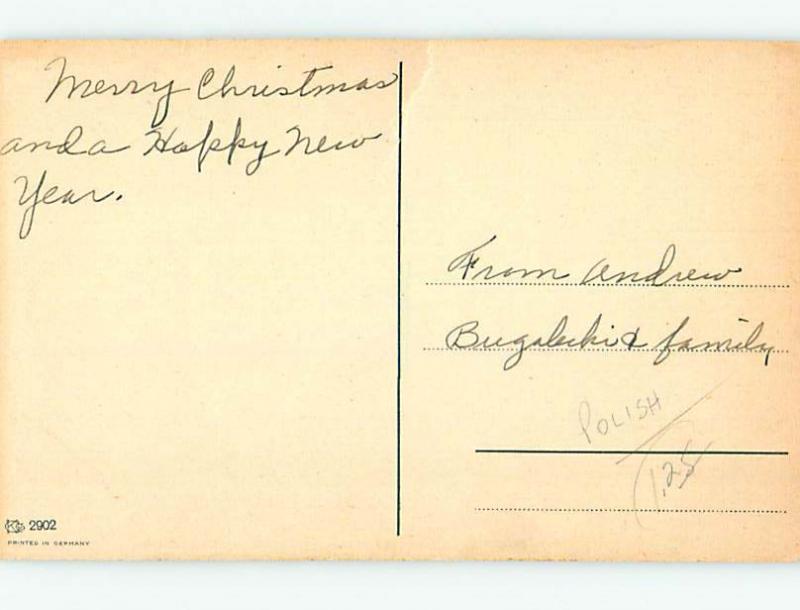 Merry Christmas
and a Happy New
Year.
From Andrew
Bugalecki & family
POLISH
1.25
2902
PRINTED IN GERMANY